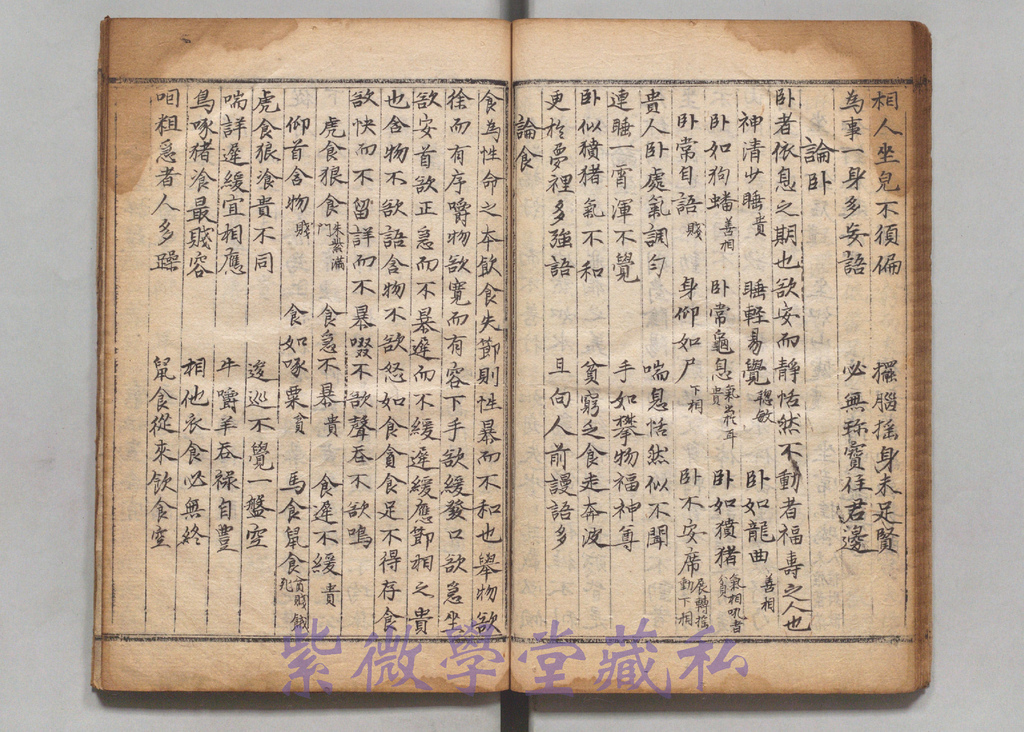 相人坐皃不須偏 擺腦搖身未足賢
為事一身多妄語 必無称寳徃君邊
論卧
卧者依息之期也欲安而静恬然不動者福壽之人也
神清少睡貴 睡輕易覺穏敏 卧如龍曲善相
卧如狗蟠善相 卧常龜息氣出在耳貴 卧如獖猪氣相吼者貧
卧常自語賤 身仰如尸下相 卧不安席展轉搖動下相
貴人卧處氣調匀 喘息恬然似不聞
連睡一霄渾不覺 手如攀物福神尊
卧似獖猪氣不和 貧窮乏食走奔波
更於夢裡多強語 旦向人前謾語多
論食
食為性命之本飲食失節則性暴而不和也舉物欲
徐而有序嚼物欲寛而有容下手欲緩發口欲急坐
欲安首欲正急而不暴遲而不緩遲緩應節相之貴
也含物不欲語含物不欲怒如食貪足不得存食
欲快而不留詳而不暴啜不欲聲吞不欲鳴
虎食狠食朱紫滿門 食急不暴貴 食遲不緩貴
仰首含物賤 食如啄粟貧 馬食鼠食貧賤餓死
虎食狼飡貴不同 逡巡不覺一盤空
喘詳遲緩宜相應 牛嚼羊吞禄自豐
鳥啄猪飡最賤容 相他衣食必無終
咱粗急者人多躁 鼠食從來飲食空
紫微學堂藏私